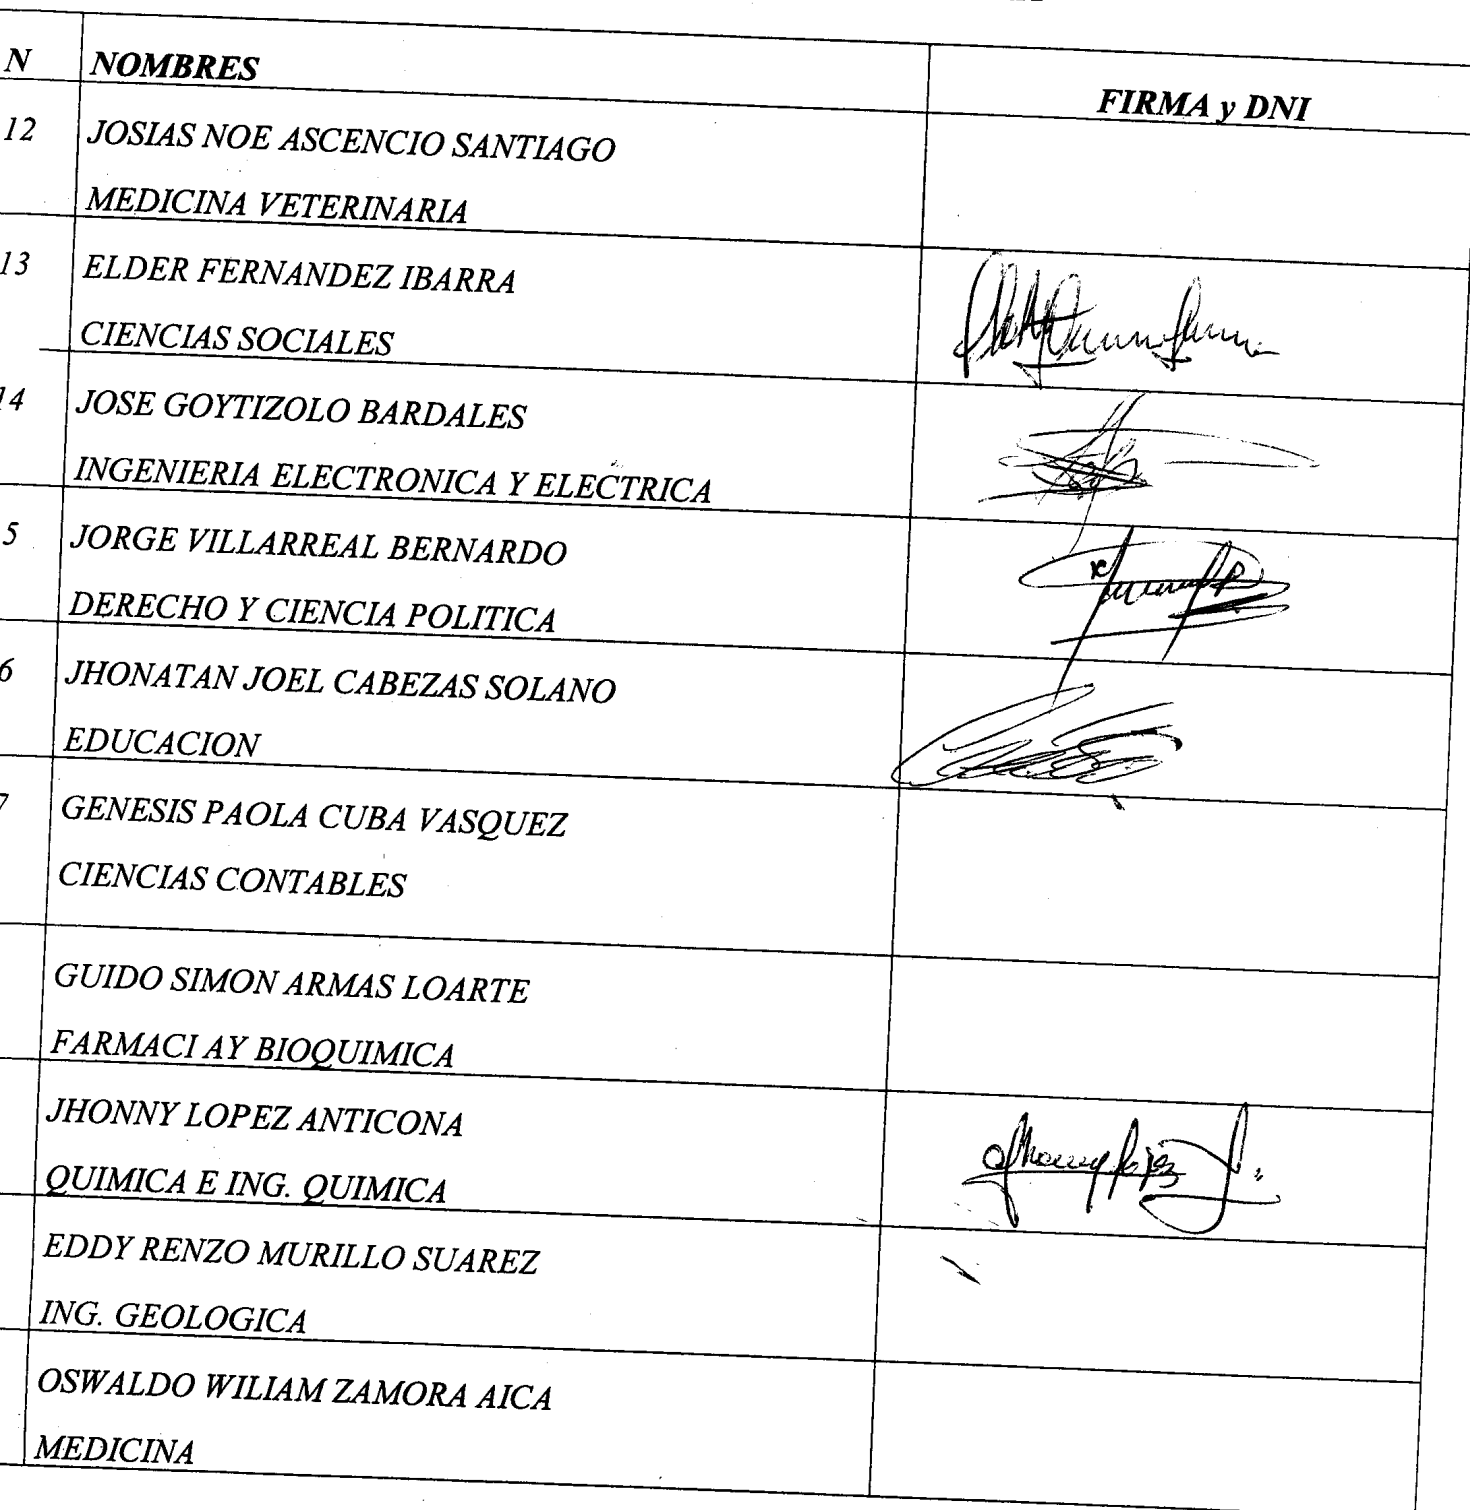 N NOMBRES FIRMA y DNI
12 JOSIAS NOE ASCENCIO SANTIAGO
MEDICINA VETERINARIA
13 ELDER FERNANDEZ IBARRA
CIENCIAS SOCIALES
14 JOSE GOYTIZOLO BARDALES
INGENIERIA ELECTRONICA Y ELECTRICA
5 JORGE VILLARREAL BERNARDO
DERECHO Y CIENCIA POLITICA
6 JHONATAN JOEL CABEZAS SOLANO
EDUCACION
7 GENESIS PAOLA CUBA VASQUEZ
CIENCIAS CONTABLES
GUIDO SIMON ARMAS LOARTE
FARMACI AY BIOQUIMICA
JHONNY LOPEZ ANTICONA
QUIMICA E ING. QUIMICA
EDDY RENZO MURILLO SUAREZ
ING. GEOLOGICA
OSWALDO WILIAM ZAMORA AICA
MEDICINA